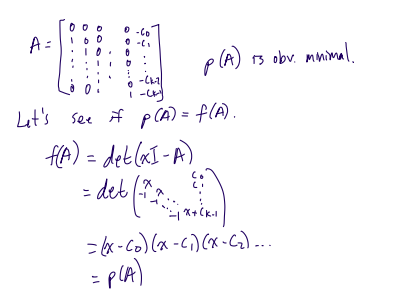 A = [ 0 0 0 0 -C0
1 0 0 0 -C1
0 1 0
0 -Ck-2
0 0 1 -Ck-1 ]
p(A) is obv. minimal.
Let's see if p(A) = f(A).
f(A) = det(xI - A)
= det ( x C0
-1 x C1
-1
-1 x+Ck-1 )
= (x-C0)(x-C1)(x-C2)...
= p(A)